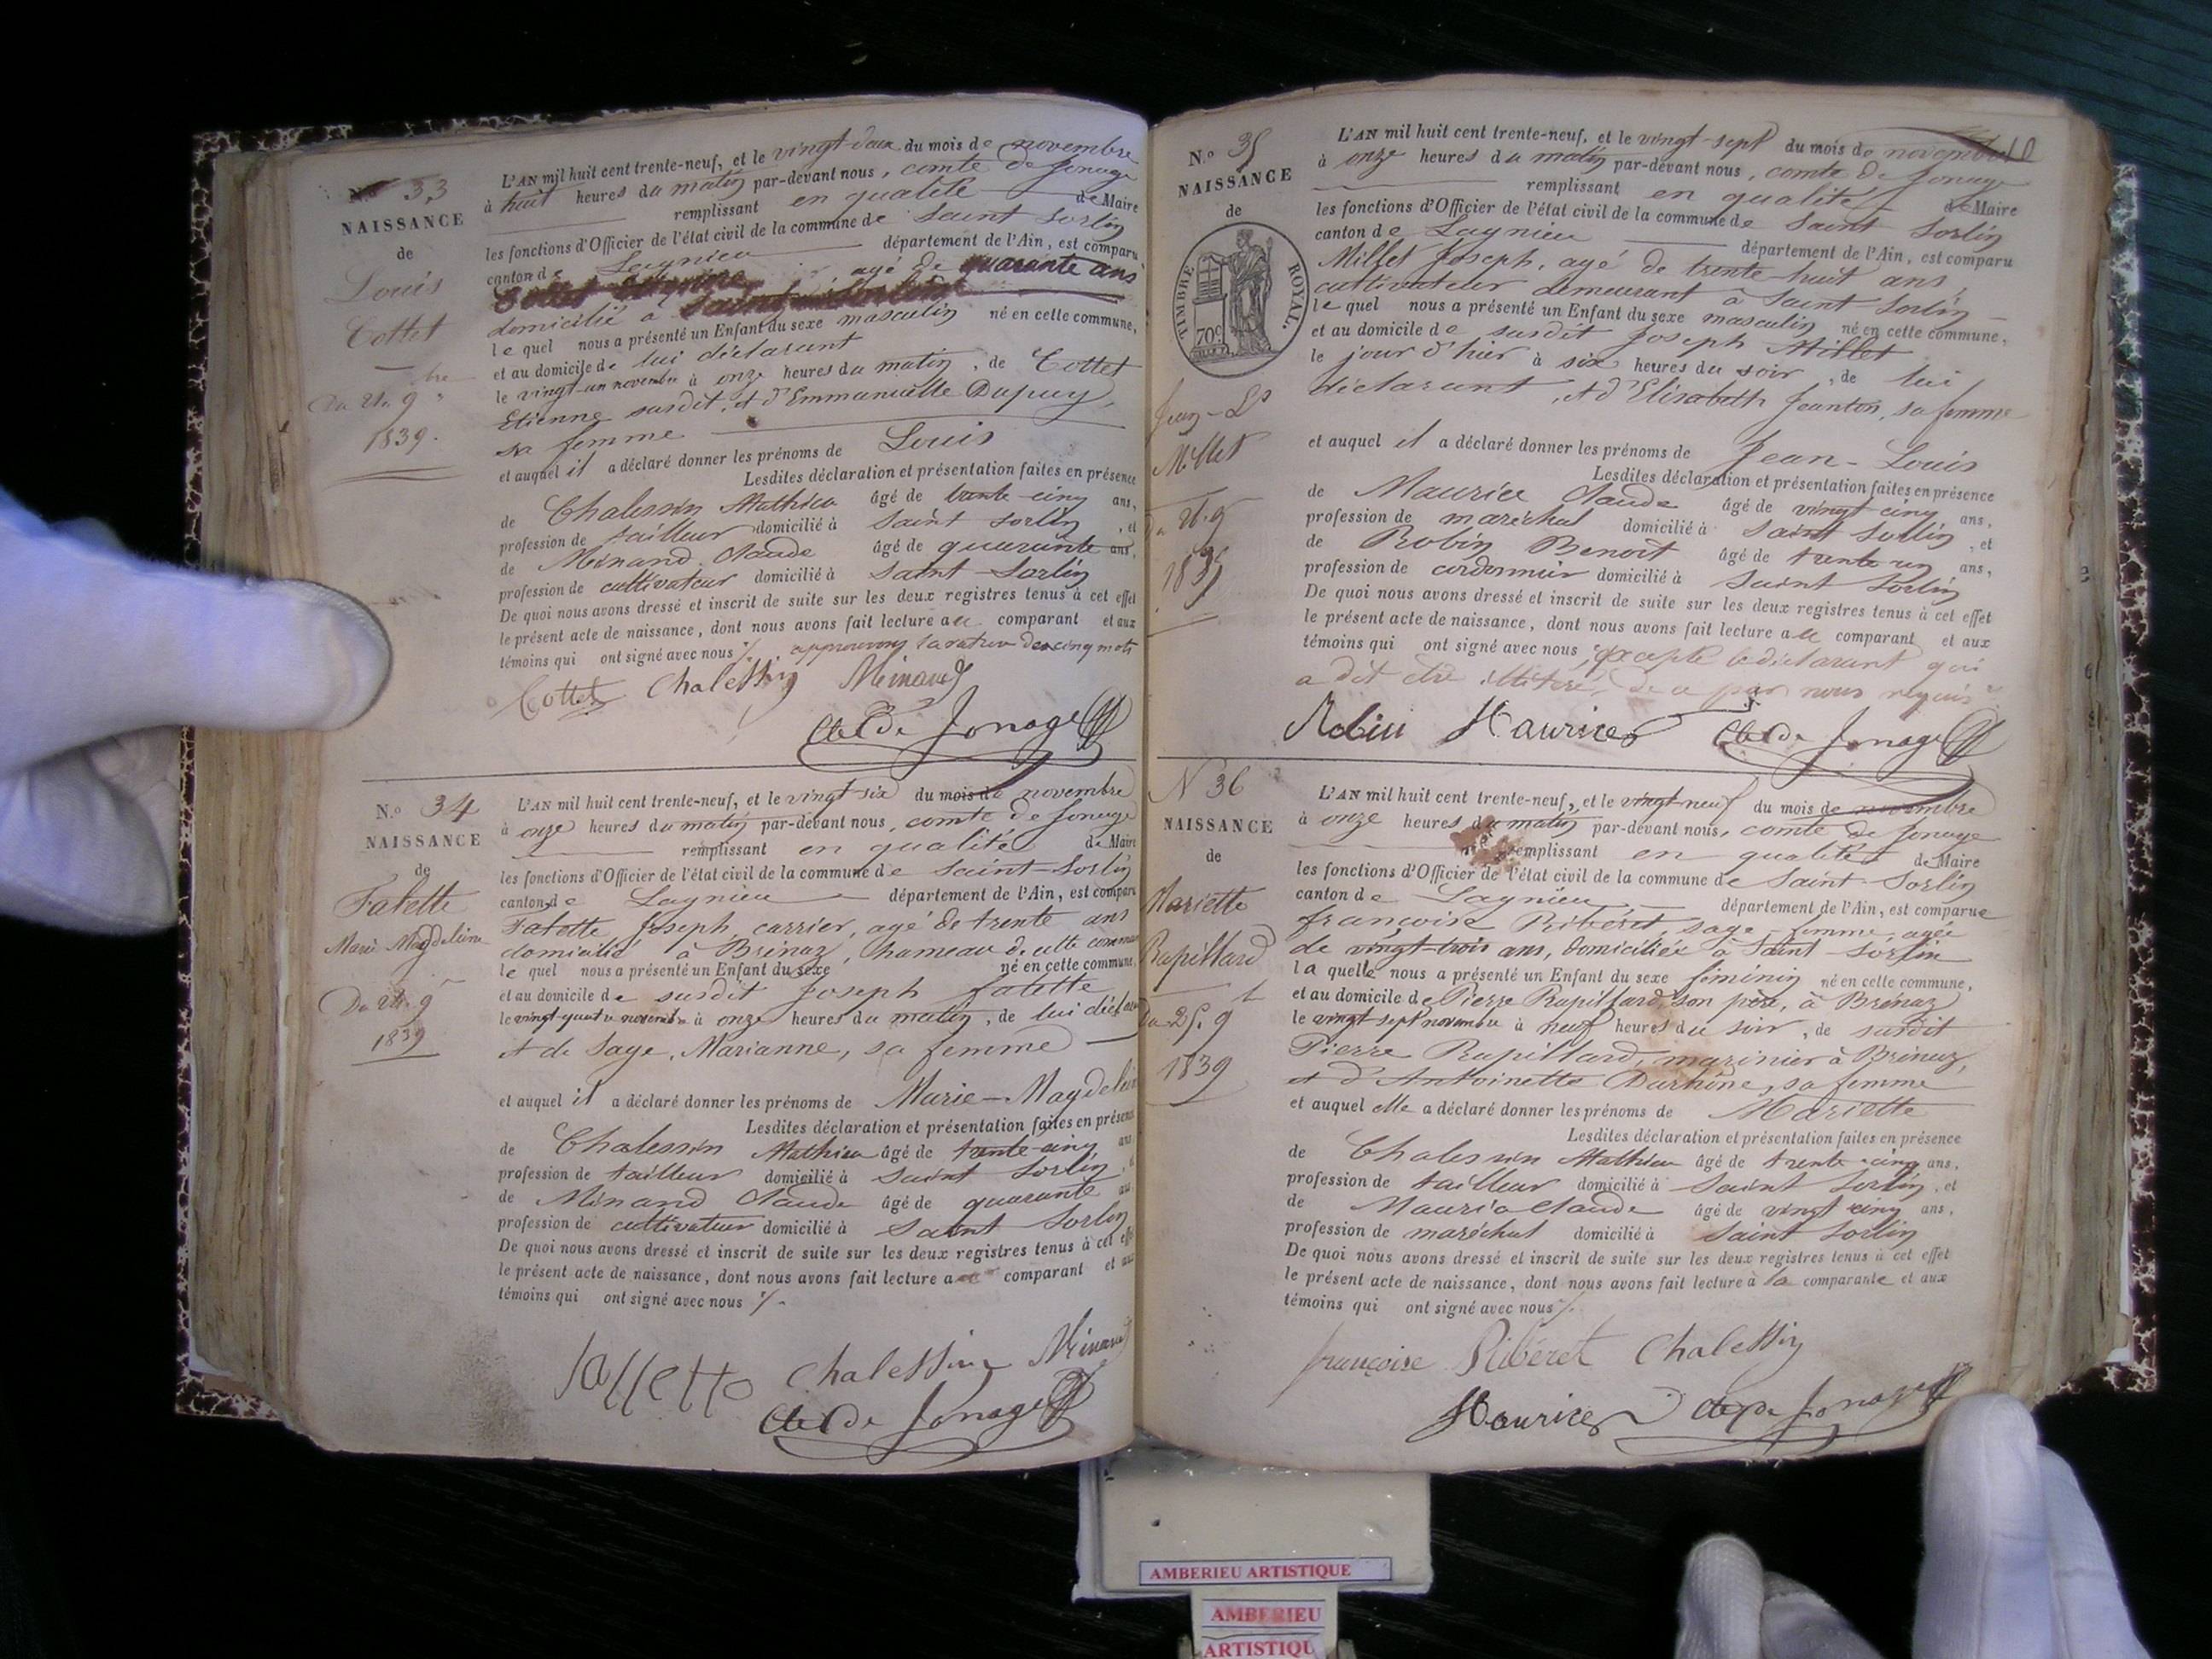 N.o 33
NAISSANCE
de
Louis
Cottet
Du 21. 9bre
1839.
L'AN mil huit cent trente-neuf, et le vingt-deux du mois de novembre
à huit heures du matin par-devant nous, comte de Jonage
remplissant en qualité de Maire
les fonctions d'Officier de l'état civil de la commune de Saint Sorlin
canton de Lagnieu département de l'Ain, est comparu
Cottet Etienne, agé de quarante ans
domicilié à Saint-Sorlin
lequel nous a présenté un Enfant du sexe masculin né en cette commune,
et au domicile de lui déclarant
le vingt-un novembre à onze heures du matin, de Cottet
Etienne susdit, et d'Emmanuelle Dupuy,
sa femme
et auquel il a déclaré donner les prénoms de Louis
Lesdites déclaration et présentation faites en présence
de Chalessin Mathieu âgé de trente-cinq ans,
profession de tailleur domicilié à Saint Sorlin, et
de Minand Claude âgé de quarante ans,
profession de cultivateur domicilié à Saint-Sorlin
De quoi nous avons dressé et inscrit de suite sur les deux registres tenus à cet effet
le présent acte de naissance, dont nous avons fait lecture au comparant et aux
témoins qui ont signé avec nous approuvons la rature de cinq mots
Cottet Chalessin Minand
Cte de Jonage
N.o 34
NAISSANCE
de
Falette
Marie Magdeleine
Du 24. 9
1839
L'AN mil huit cent trente-neuf, et le vingt-six du mois de novembre
à onze heures du matin par-devant nous, comte de Jonage
remplissant en qualité de Maire
les fonctions d'Officier de l'état civil de la commune de Saint-Sorlin
canton de Lagnieu département de l'Ain, est comparu
Falette Joseph, carrier, agé de trente ans
domicilié à Brénaz, hameau de cette commune
lequel nous a présenté un Enfant du sexe né en cette commune,
et au domicile de susdit Joseph Falette
le vingt-quatre novembre à onze heures du matin, de lui déclarant
et de Sage, Marianne, sa femme
et auquel il a déclaré donner les prénoms de Marie-Magdeleine
Lesdites déclaration et présentation faites en présence
de Chalessin Mathieu âgé de trente-cinq ans
profession de tailleur domicilié à Saint Sorlin,
de Minand Claude âgé de quarante
profession de cultivateur domicilié à Saint Sorlin
De quoi nous avons dressé et inscrit de suite sur les deux registres tenus à cet effet
le présent acte de naissance, dont nous avons fait lecture au comparant et aux
témoins qui ont signé avec nous
falletto Chalessin Minand
Cte de Jonage
10
N.o 35
NAISSANCE
de
TIMBRE ROYAL.
70c
Jean-Ls
Millet
1839
L'AN mil huit cent trente-neuf, et le vingt-sept du mois de novembre
à onze heures du matin par-devant nous, comte de Jonage
remplissant en qualité de Maire
les fonctions d'Officier de l'état civil de la commune de Saint Sorlin
canton de Lagnieu département de l'Ain, est comparu
Millet Joseph, agé de trente-huit ans,
cultivateur demeurant à Saint Sorlin
lequel nous a présenté un Enfant du sexe masculin né en cette commune,
et au domicile de susdit Joseph Millet
le jour d'hier à six heures du soir, de lui
déclarant, et d'Elisabeth Jeanton, sa femme
et auquel il a déclaré donner les prénoms de Jean-Louis
Lesdites déclaration et présentation faites en présence
de Maurice Claude âgé de vingt-cinq ans,
profession de maréchal domicilié à Saint Sorlin, et
de Robin Benoit âgé de trente-un ans,
profession de cordonnier domicilié à Saint Sorlin
De quoi nous avons dressé et inscrit de suite sur les deux registres tenus à cet effet
le présent acte de naissance, dont nous avons fait lecture au comparant et aux
témoins qui ont signé avec nous excepté le déclarant qui
a dit être illitéré, de ce par nous requis
Robin Maurice Cte de Jonage
N 36
NAISSANCE
de
Mariette
Rapillard
1839
L'AN mil huit cent trente-neuf, et le vingt-neuf du mois de novembre
à onze heures du matin par-devant nous, comte de Jonage
remplissant en qualité de Maire
les fonctions d'Officier de l'état civil de la commune de Saint-Sorlin
canton de Lagnieu département de l'Ain, est comparue
françoise Ribéret, sage-femme, agée
de vingt-trois ans, domiciliée à Saint-Sorlin
laquelle nous a présenté un Enfant du sexe féminin né en cette commune,
et au domicile de Pierre Rapillard, son père, à Brénaz
le vingt-sept novembre à neuf heures du soir, de susdit
Pierre Rapillard, marinier à Brénaz,
et d'Antoinette sa femme
et auquel elle a déclaré donner les prénoms de Mariette
Lesdites déclaration et présentation faites en présence
de Chalessin Mathieu âgé de trente-cinq ans,
profession de tailleur domicilié à Saint Sorlin, et
de Maurice Claude âgé de vingt cinq ans,
profession de maréchal domicilié à Saint Sorlin
De quoi nous avons dressé et inscrit de suite sur les deux registres tenus à cet effet
le présent acte de naissance, dont nous avons fait lecture à la comparante et aux
témoins qui ont signé avec nous
françoise Ribéret Chalessin
Maurice Cte de Jonage
AMBERIEU ARTISTIQUE
AMBERIEU
ARTISTIQU